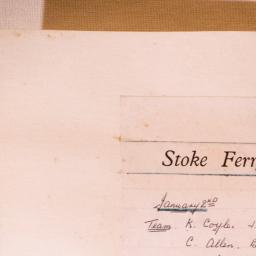 Stoke Ferr
January 2nd
Team. K. Coyle.
C. Allen.